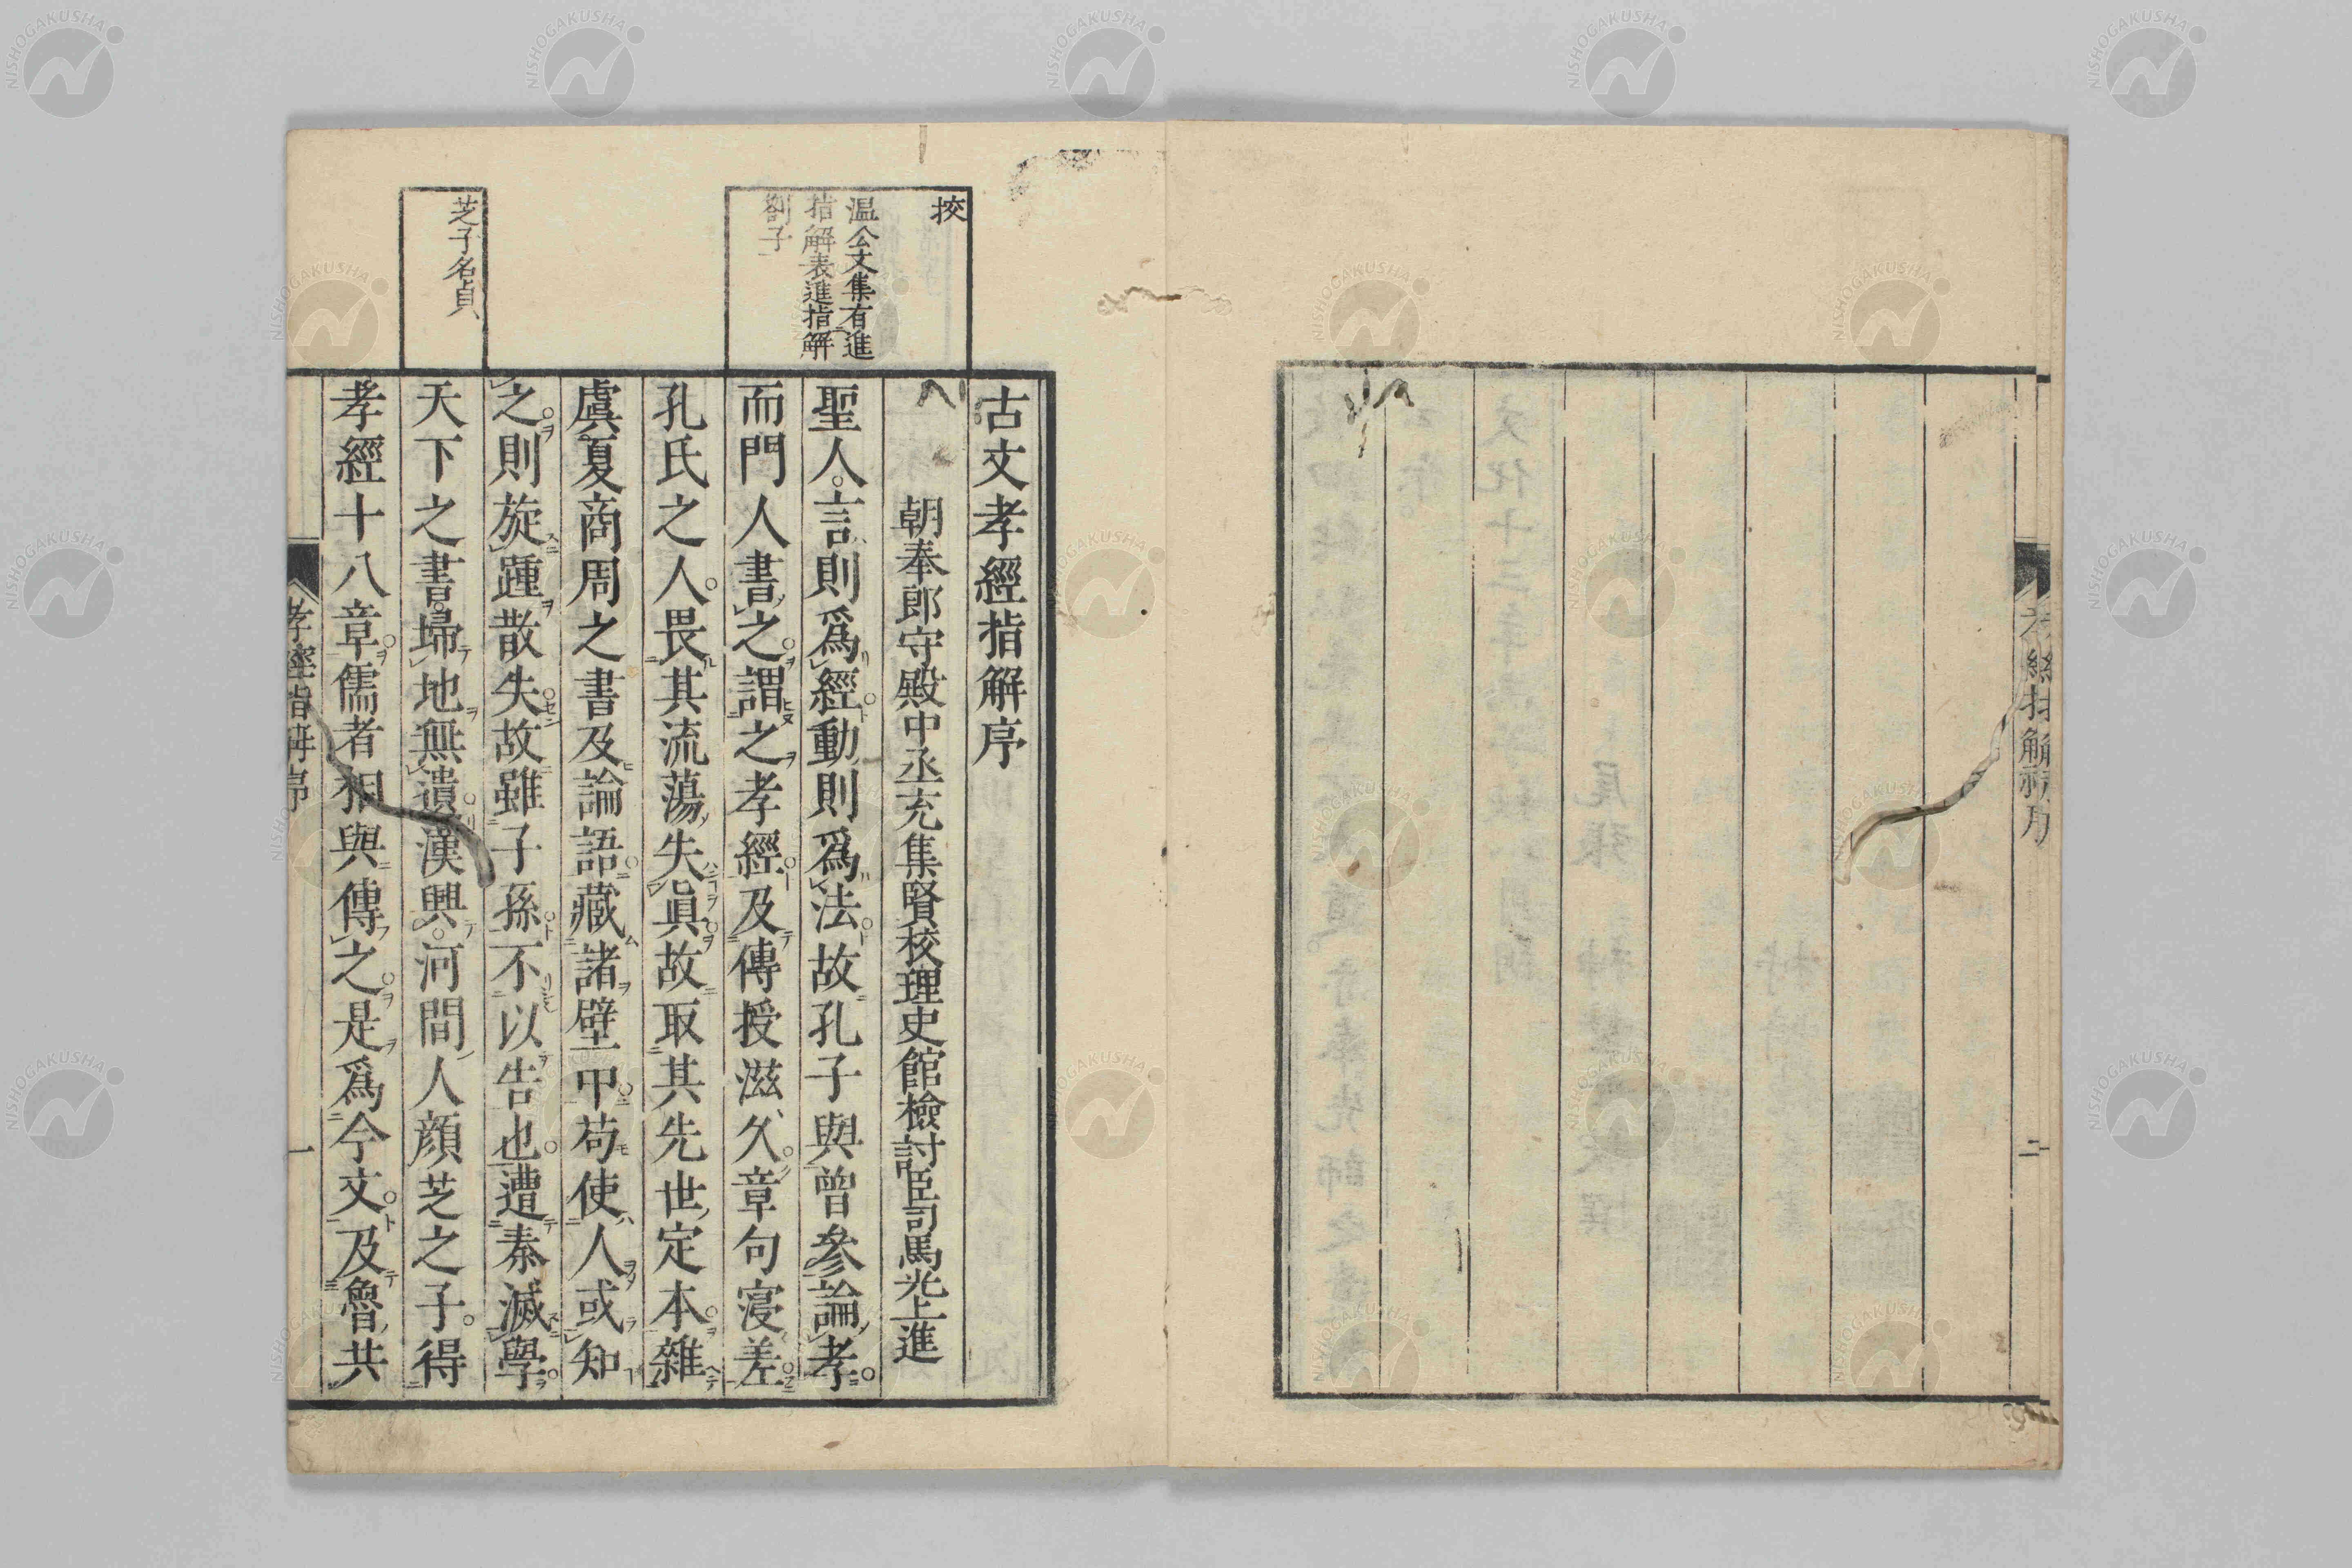 孝經指解序
二
古文孝經指解序
朝奉郎守殿中丞充集賢校理史館檢討臣司馬光上進
聖人言則爲經動則爲法故孔子與曾參論孝
而門人書之謂之孝經及傳授滋久章句寖差
孔氏之人畏其流蕩失眞故取其先世定本雜
虞夏商周之書及論語藏諸壁中苟使人或知
之則旋踵散失故雖子孫不以告也遭秦滅學
天下之書埽地無遺漢興河間人顔芝之子得
孝經十八章儒者相與傳之是爲今文及魯共
挍
温公文集有進
指解表進指解
劄子
芝子名貞
孝經指解序
一
NISHOGAKUSHA